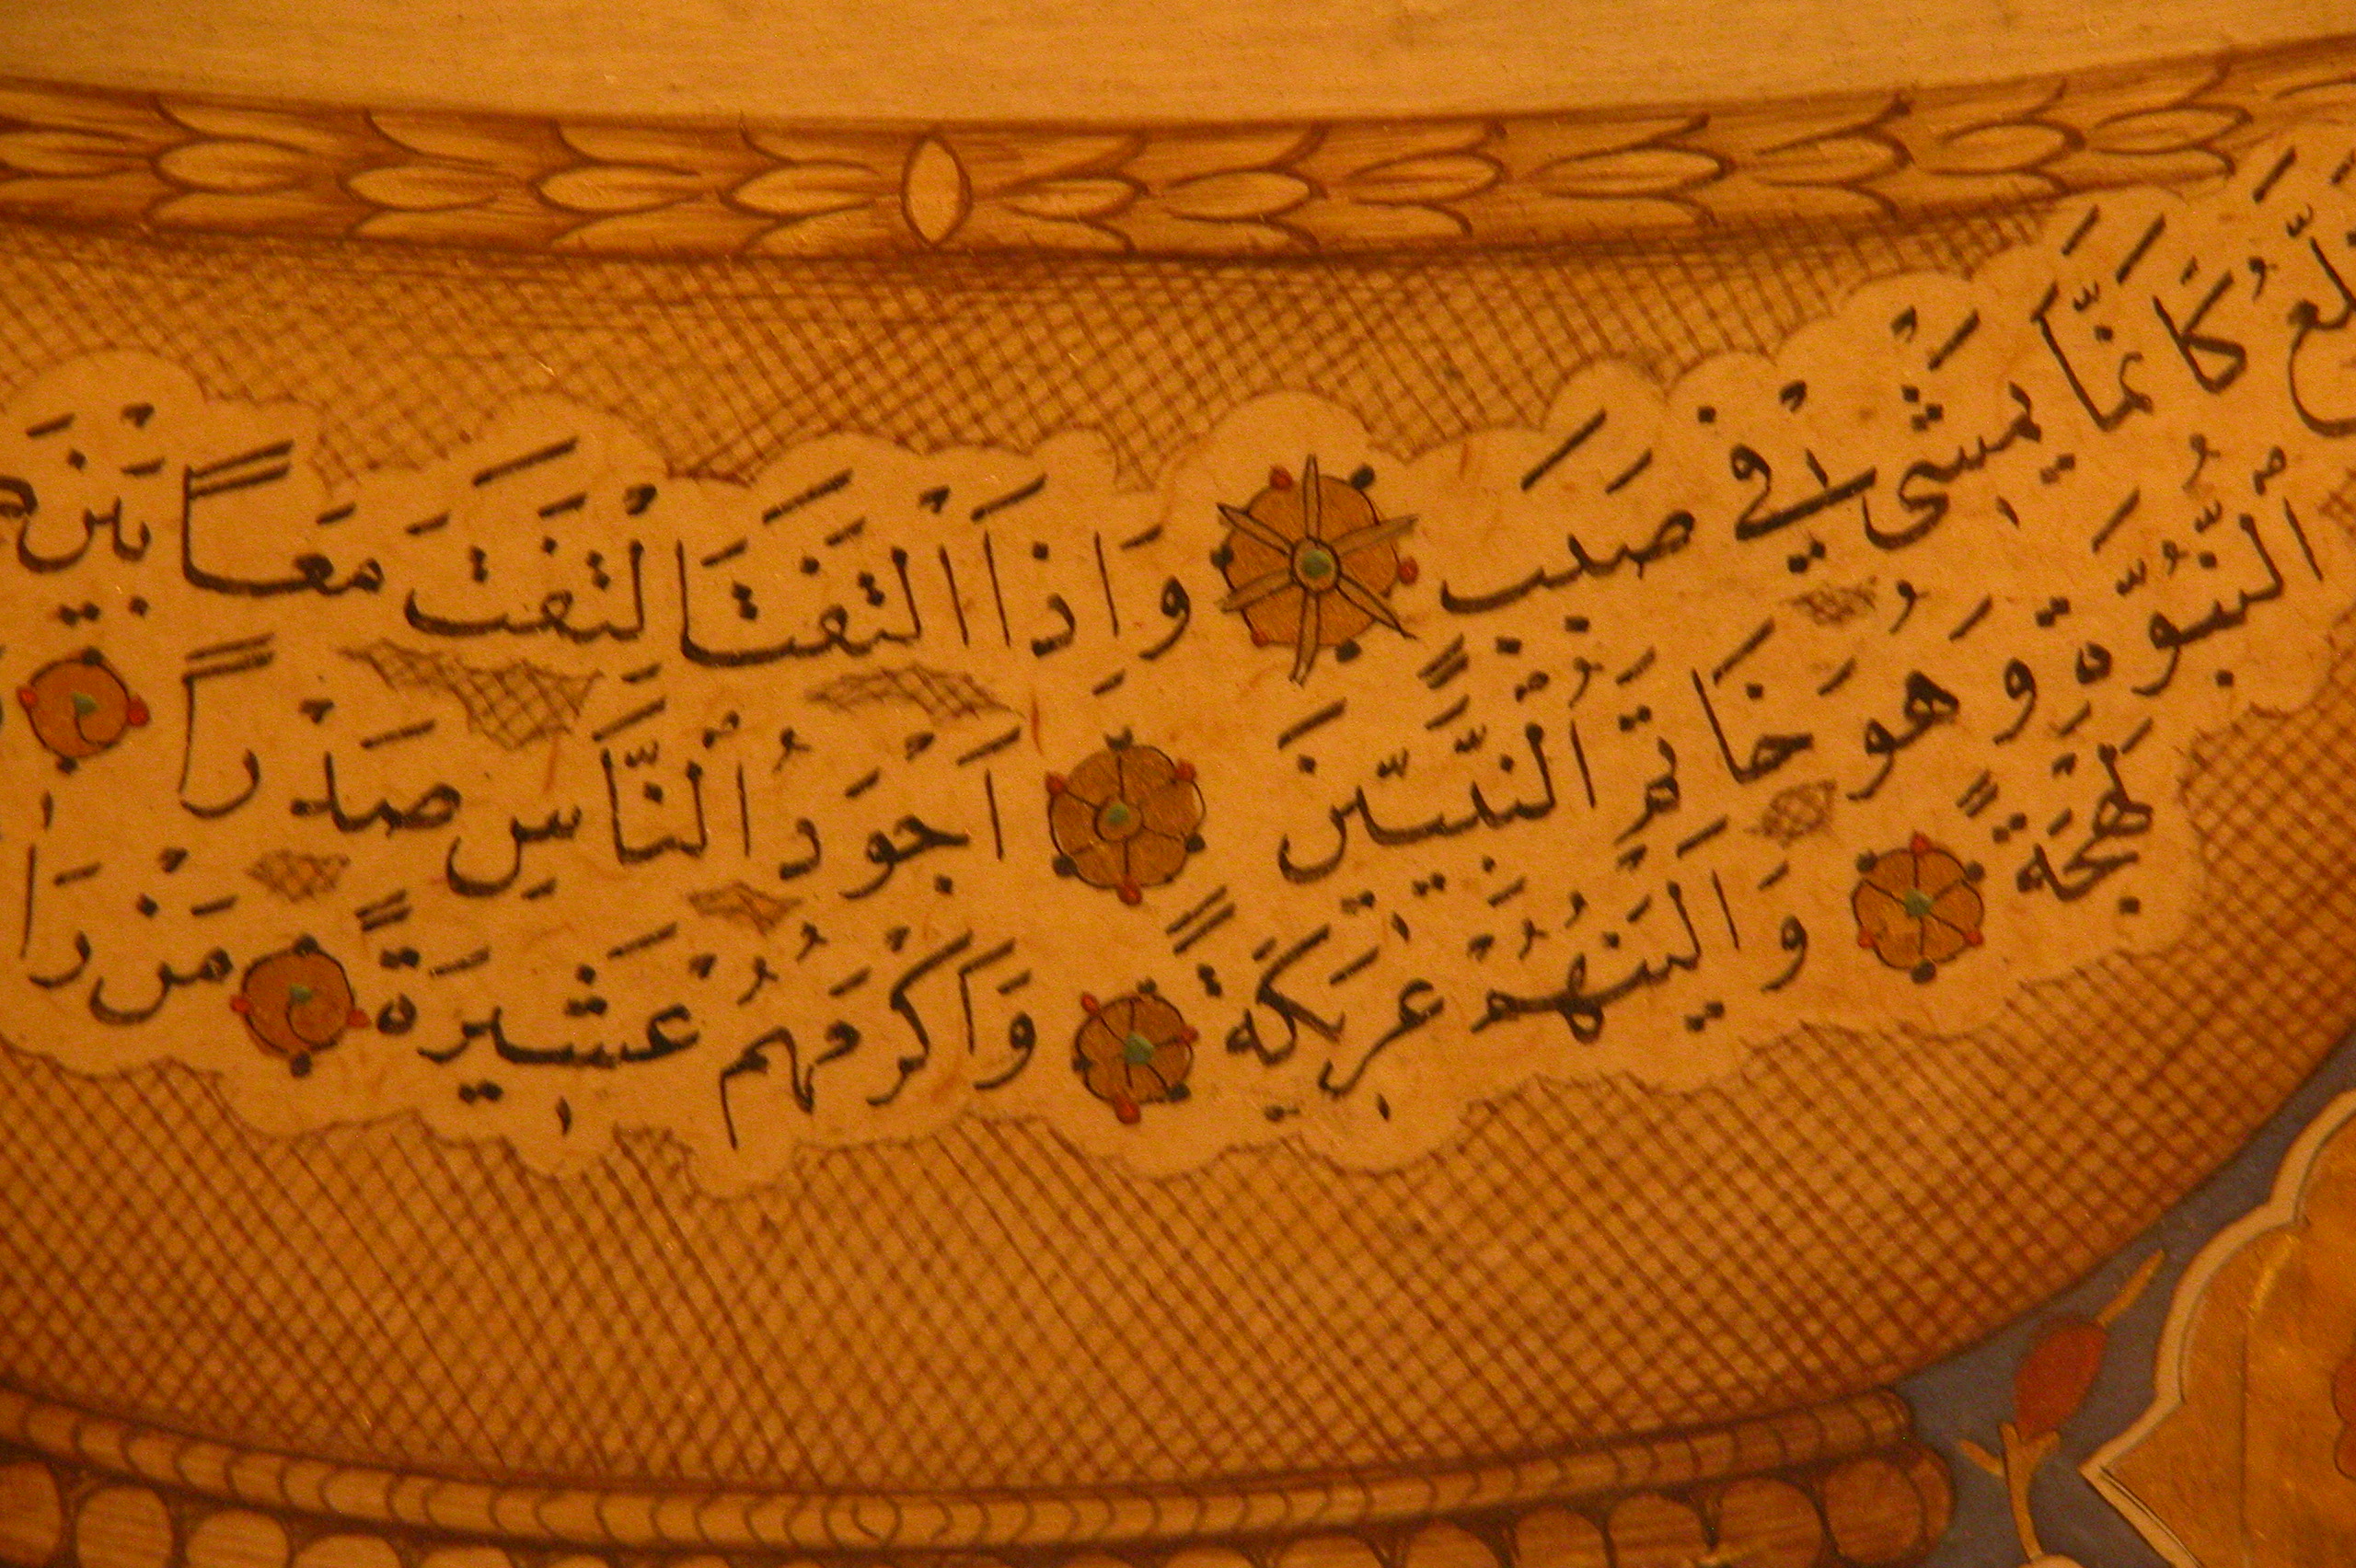 كَاَنَّمَا يَمْشِى فِى صَبَبٍ وَاِذَا الْتَفَتَ اِلْتَفَتَ مَعاً بَيْنَ
اَلنُّبُوَّةِ وَهُوَ خَاتَمُ النَّبِيّينَ اَجْوَدُ النَّاسِ صَدْراً
لَهْجَةً وَاَلْيَنُهُمْ عَرِيكَةً وَاَكْرَمُهُمْ عَشِيرَةً مَنْ رَا